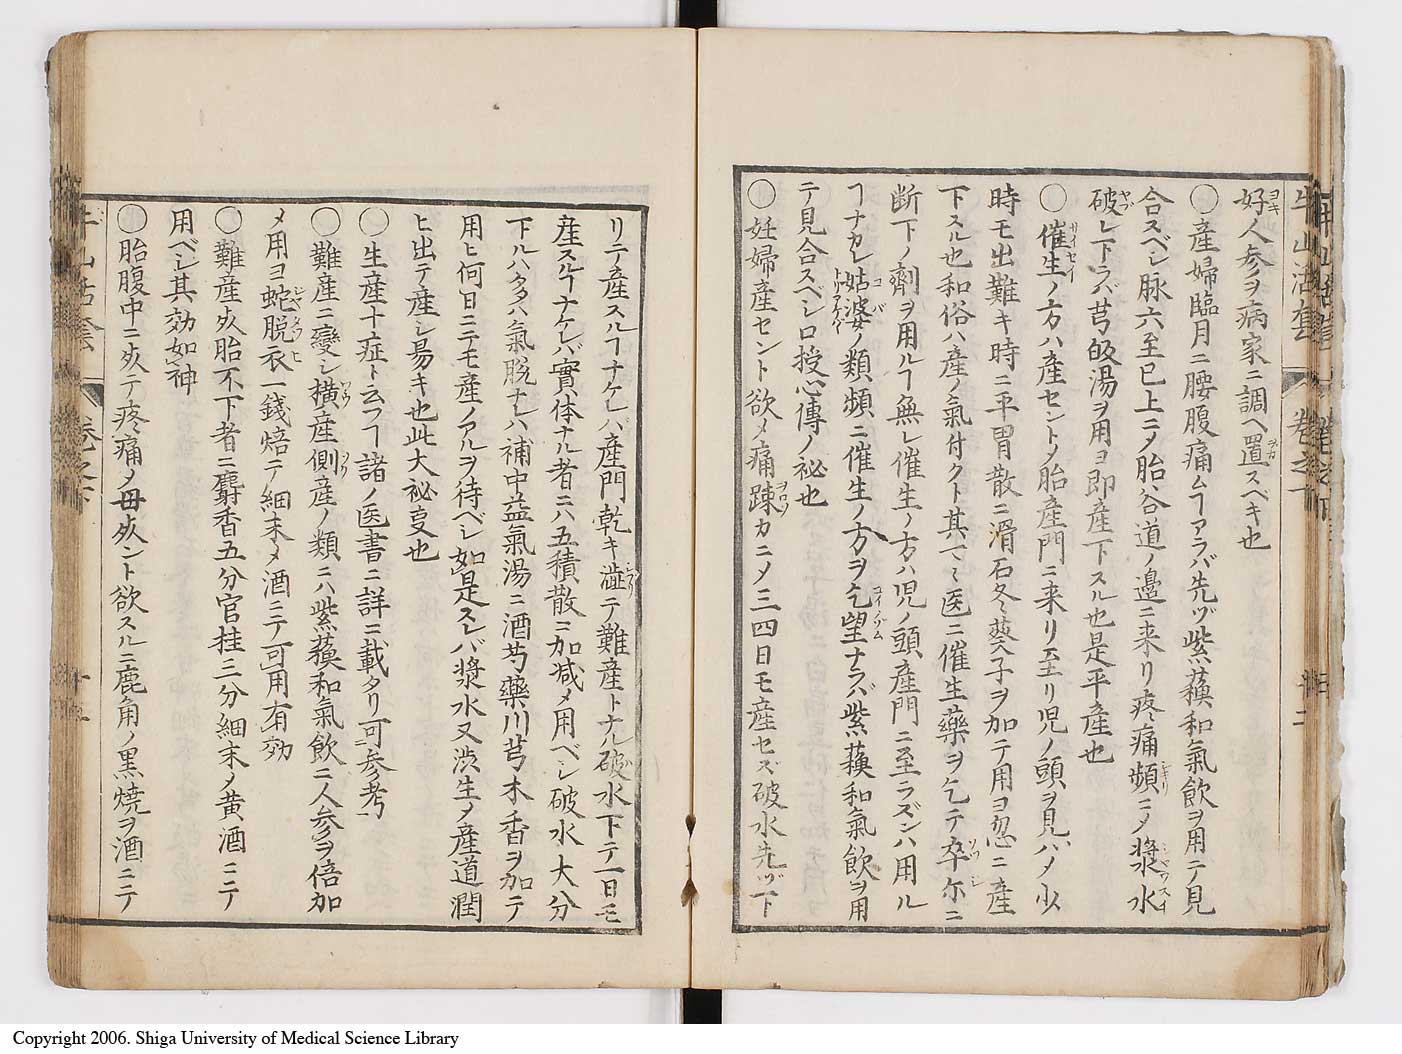 好人参ヲ病家ニ調ヘ置スベキ也
○産婦臨月ニ腰腹痛ムヿアラバ先ヅ紫蘓和氣飲ヲ用テ見
合スベシ脉六至已上ニノ胎谷道ノ邉ニ来リ疼痛頻ニメ漿水
破レ下ラバ芎皈湯ヲ用ヨ即産下スル也是平産也
○催生ノ方ハ産セントメ胎産門ニ来リ至リ児ノ頭ヲ見ハメ少
時モ出難キ時ニ平胃散ニ滑石冬葵子ヲ加テ用ヨ忽ニ産
下スル也和俗ハ産ノ氣付クト其マヽ医ニ催生藥ヲ乞テ卒尓ニ
断下ノ劑ヲ用ルヿ無レ催生ノ方ハ児ノ頭産門ニ至ラズンハ用ル
ヿナカレ姑婆ノ類頻ニ催生ノ方ヲ乞望ナラバ紫蘓和氣飲ヲ用
テ見合スベシ口授心傳ノ祕也
○妊婦産セント欲メ痛踈カニメ三四日モ産セズ破水先ヅ下
リテ産スルヿナケレバ産門乾キ澁テ難産トナル破水下テ一日モ
産スルヿナケレバ實体ナル者ニハ五積散ニ加减メ用ベシ破水大分
下ルハ多クハ氣脱ナレハ補中益氣湯ニ酒芍藥川芎木香ヲ加テ
用ヒ何日ニテモ産ノアルヲ待ベシ如是スレバ漿水又渋生メ産道潤
ヒ出テ産シ昜キ也此大祕㕝也
○生産十症ト云フヿ諸ノ医書ニ詳ニ載タリ可参考
○難産ニ變シ横産側産ノ類ニハ紫蘓和氣飲ニ人参ヲ倍加
メ用ヨ蛇脱衣一錢焙テ細末メ酒ニテ可用有効
○難産死胎不下者ニ麝香五分官桂三分細末メ黄酒ニテ
用ベシ其効如神
○胎腹中ニ死テ疼痛メ母死ント欲スルニ鹿角ノ黒燒ヲ酒ニテ
牛山活套
卷之下
十二
Copyright 2006. Shiga University of Medical Science Library